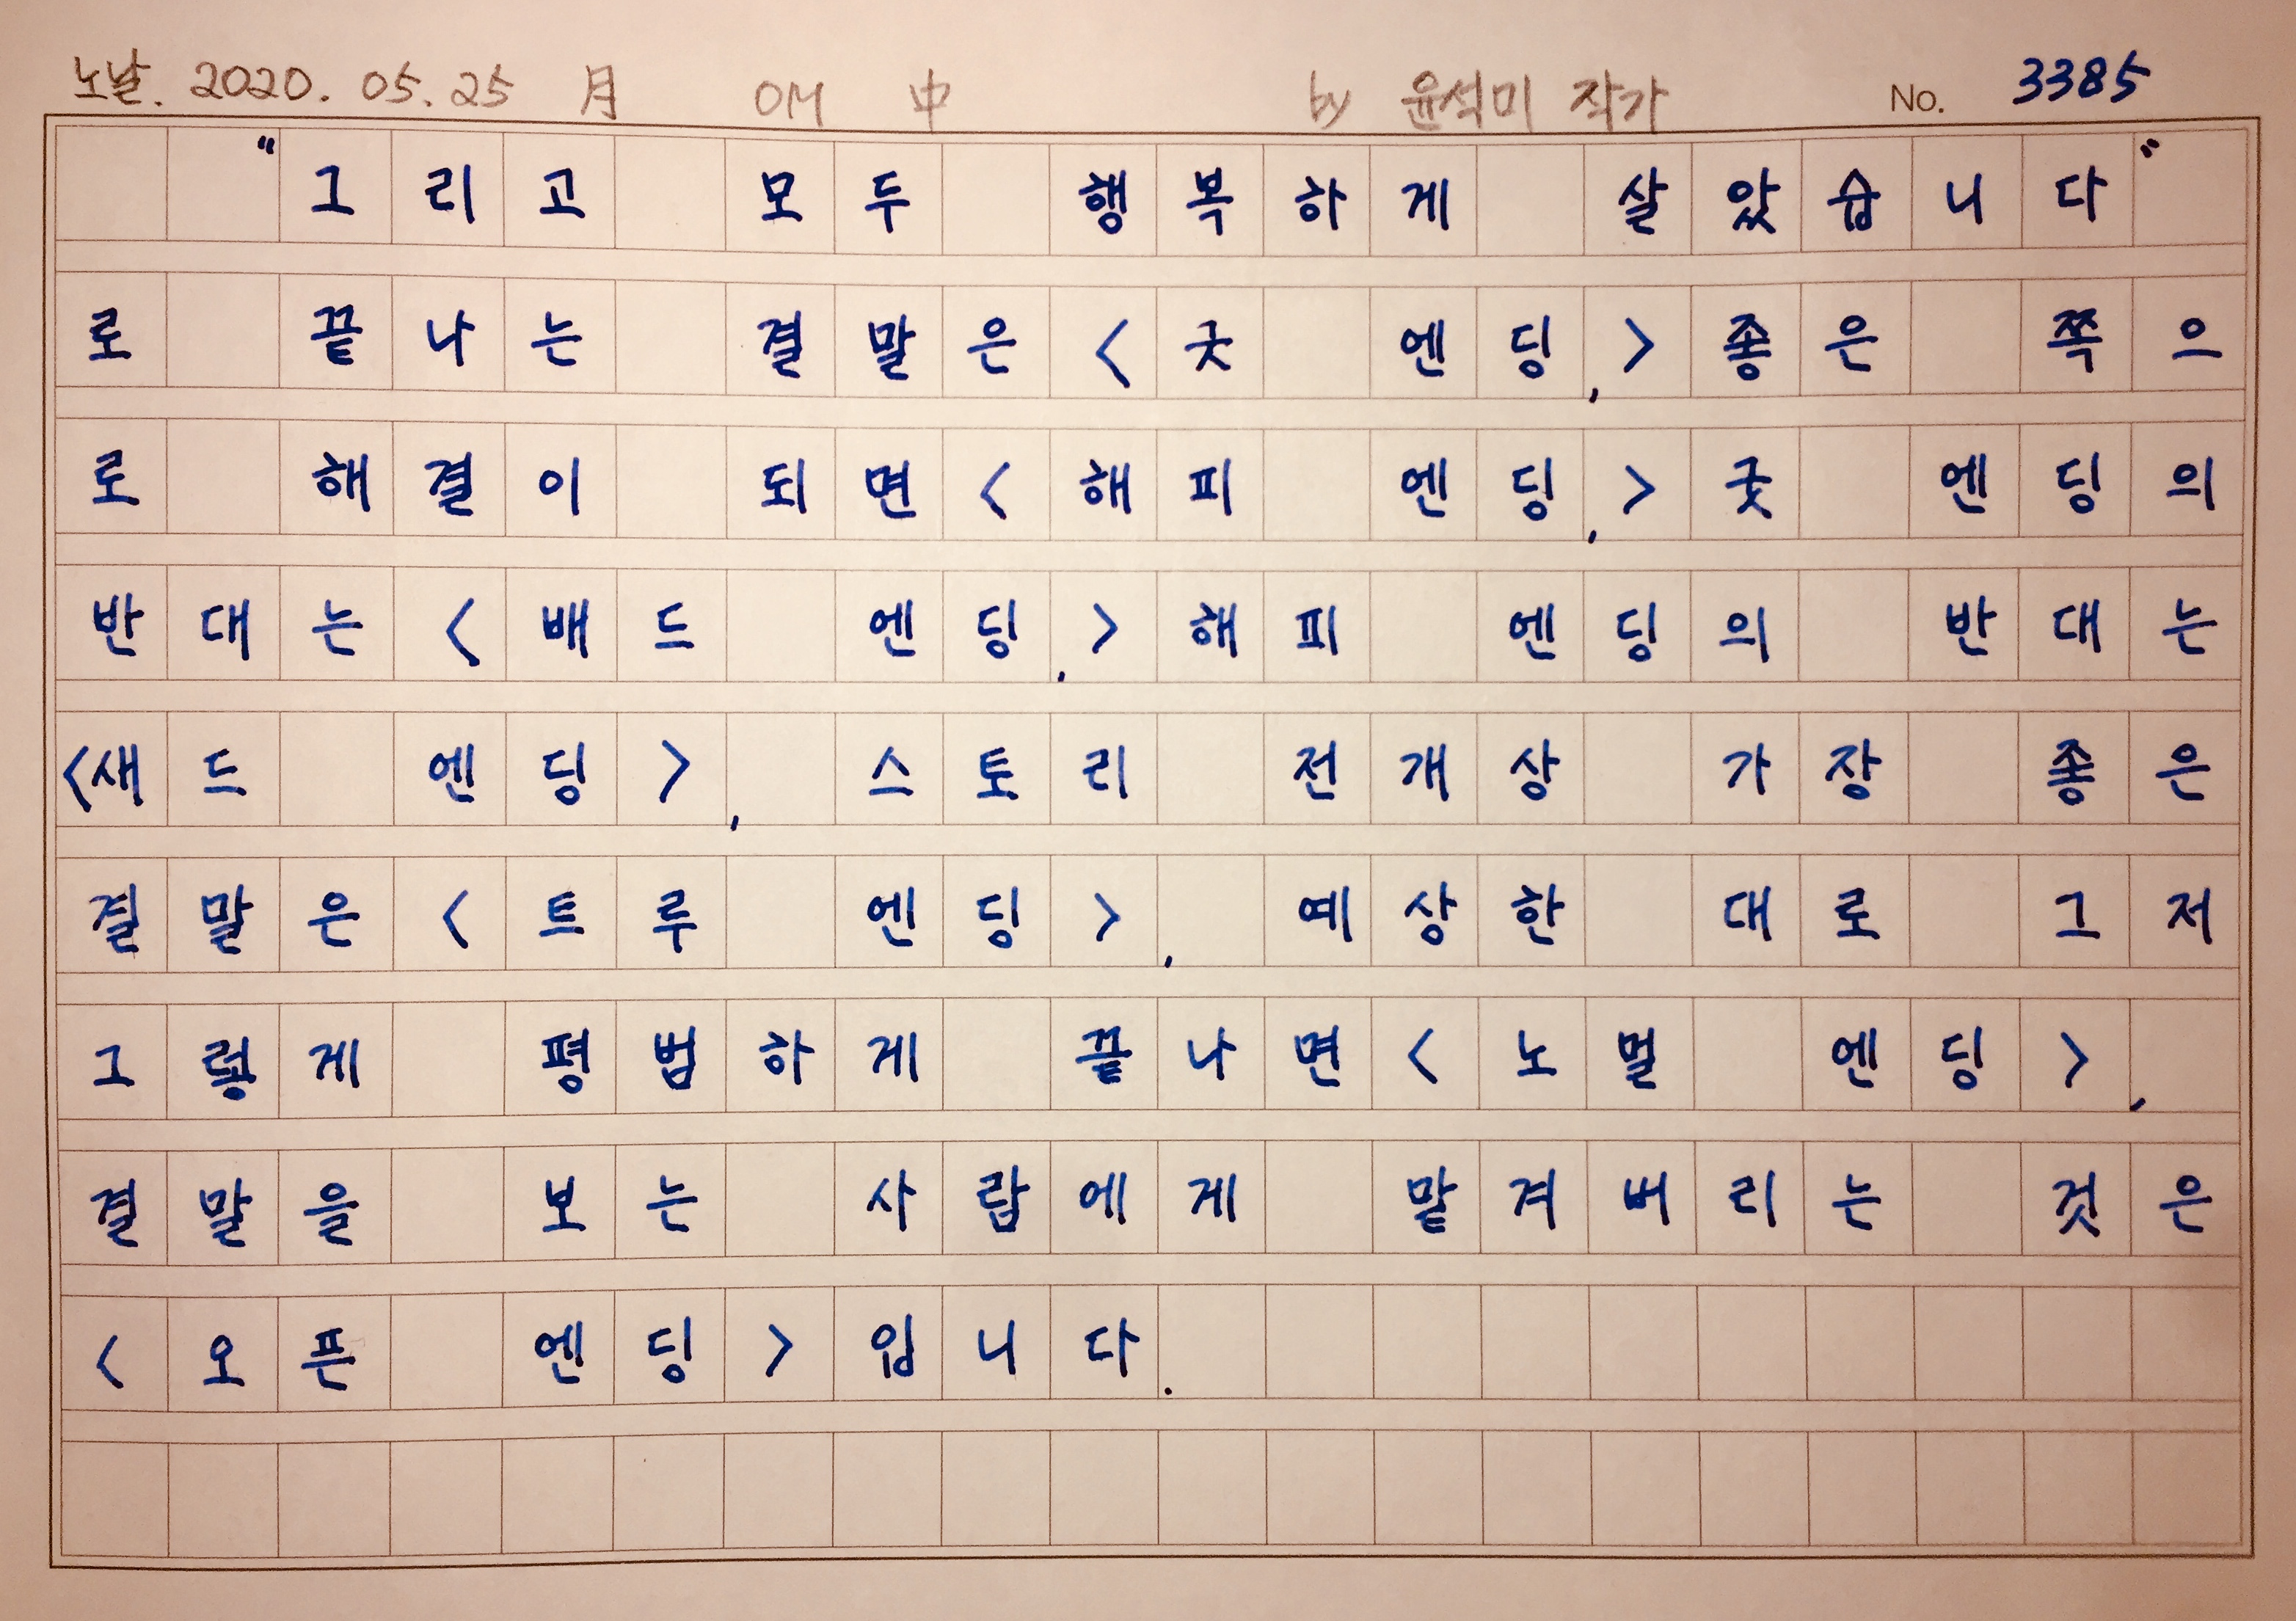 노날. 2020. 05. 25 月 OM 中 by 윤석미 작가 No. 3385
"그리고 모두 행복하게 살았습니다"
로 끝나는 결말은 <굿 엔딩,> 좋은 쪽으
로 해결이 되면 <해피 엔딩,> 굿 엔딩의
반대는 <배드 엔딩,> 해피 엔딩의 반대는
<새드 엔딩>, 스토리 전개상 가장 좋은
결말은 <트루 엔딩>, 예상한 대로 그저
그렇게 평범하게 끝나면 <노멀 엔딩>,
결말을 보는 사람에게 맡겨버리는 것은
<오픈 엔딩>입니다.